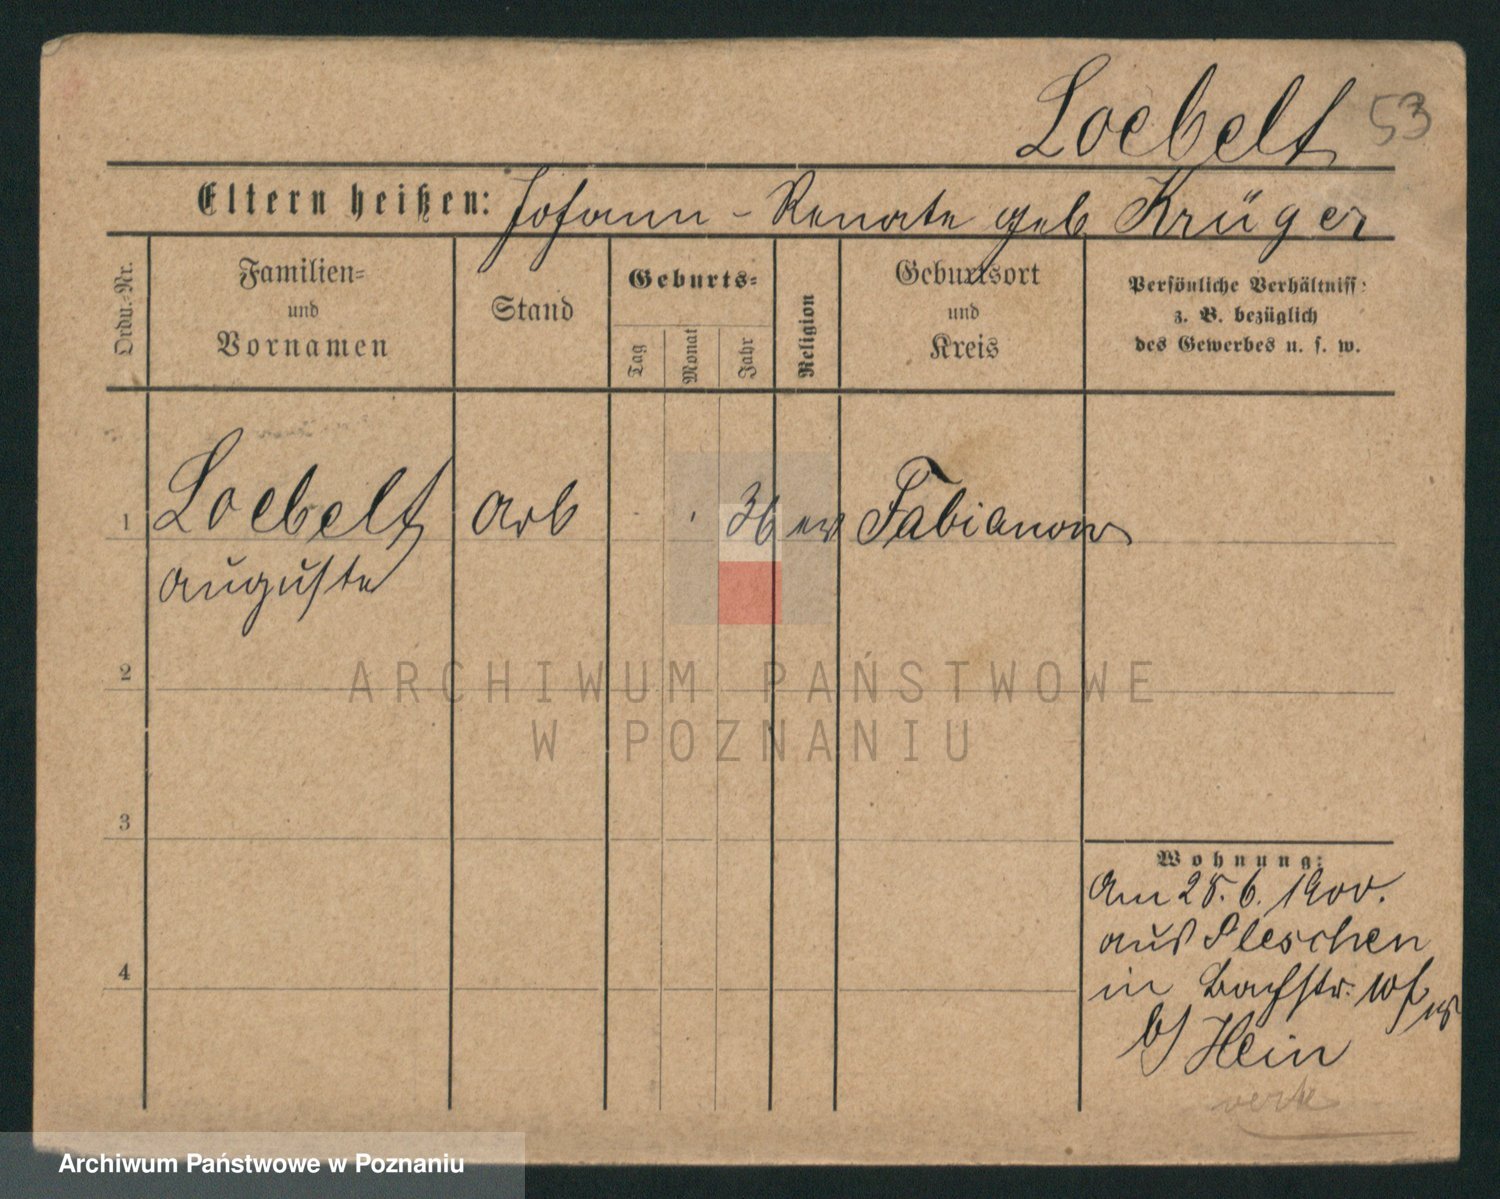 Loebelt 53
Eltern heißen: Johann - Renate geb Krüger
Ordn.-Nr.
Familien-
und
Vornamen
Stand
Geburts-
Tag
Monat
Jahr
Religion
Geburtsort
und
Kreis
Persönliche Verhältniss:
z. B. bezüglich
des Gewerbes u. s. w.
1 Loebelt Arb 36 ev Fabianow
Auguste
2
ARCHIWUM PAŃSTWOWE
W POZNANIU
3
4
Wohnung:
Am 28.6.1900.
aus Pleschen
in Bachstr.
b/ Hein
Archiwum Państwowe w Poznaniu